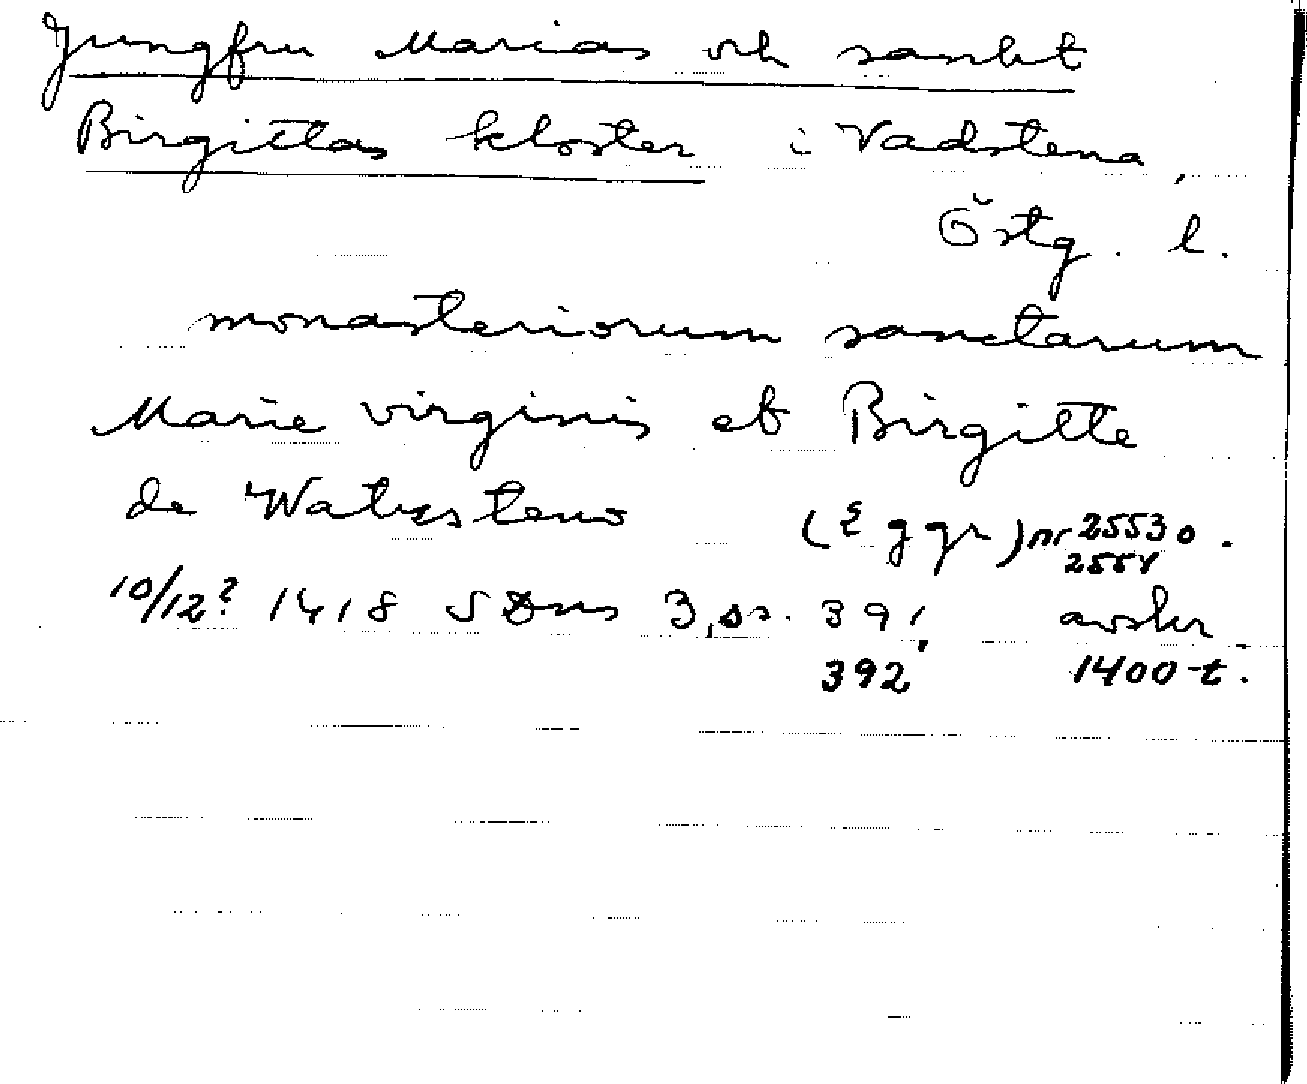 Jungfru Marias och sankt
Birgittas kloster i Vadstena,
Östg. l.
monasteriorum sanctarum
Marie virginis et Birgitte
de Watzsteno
(E ggr) nr 2553 o.
2554
10/12? 1418 SDns 3, ss. 391, avskr
392 1400-t.